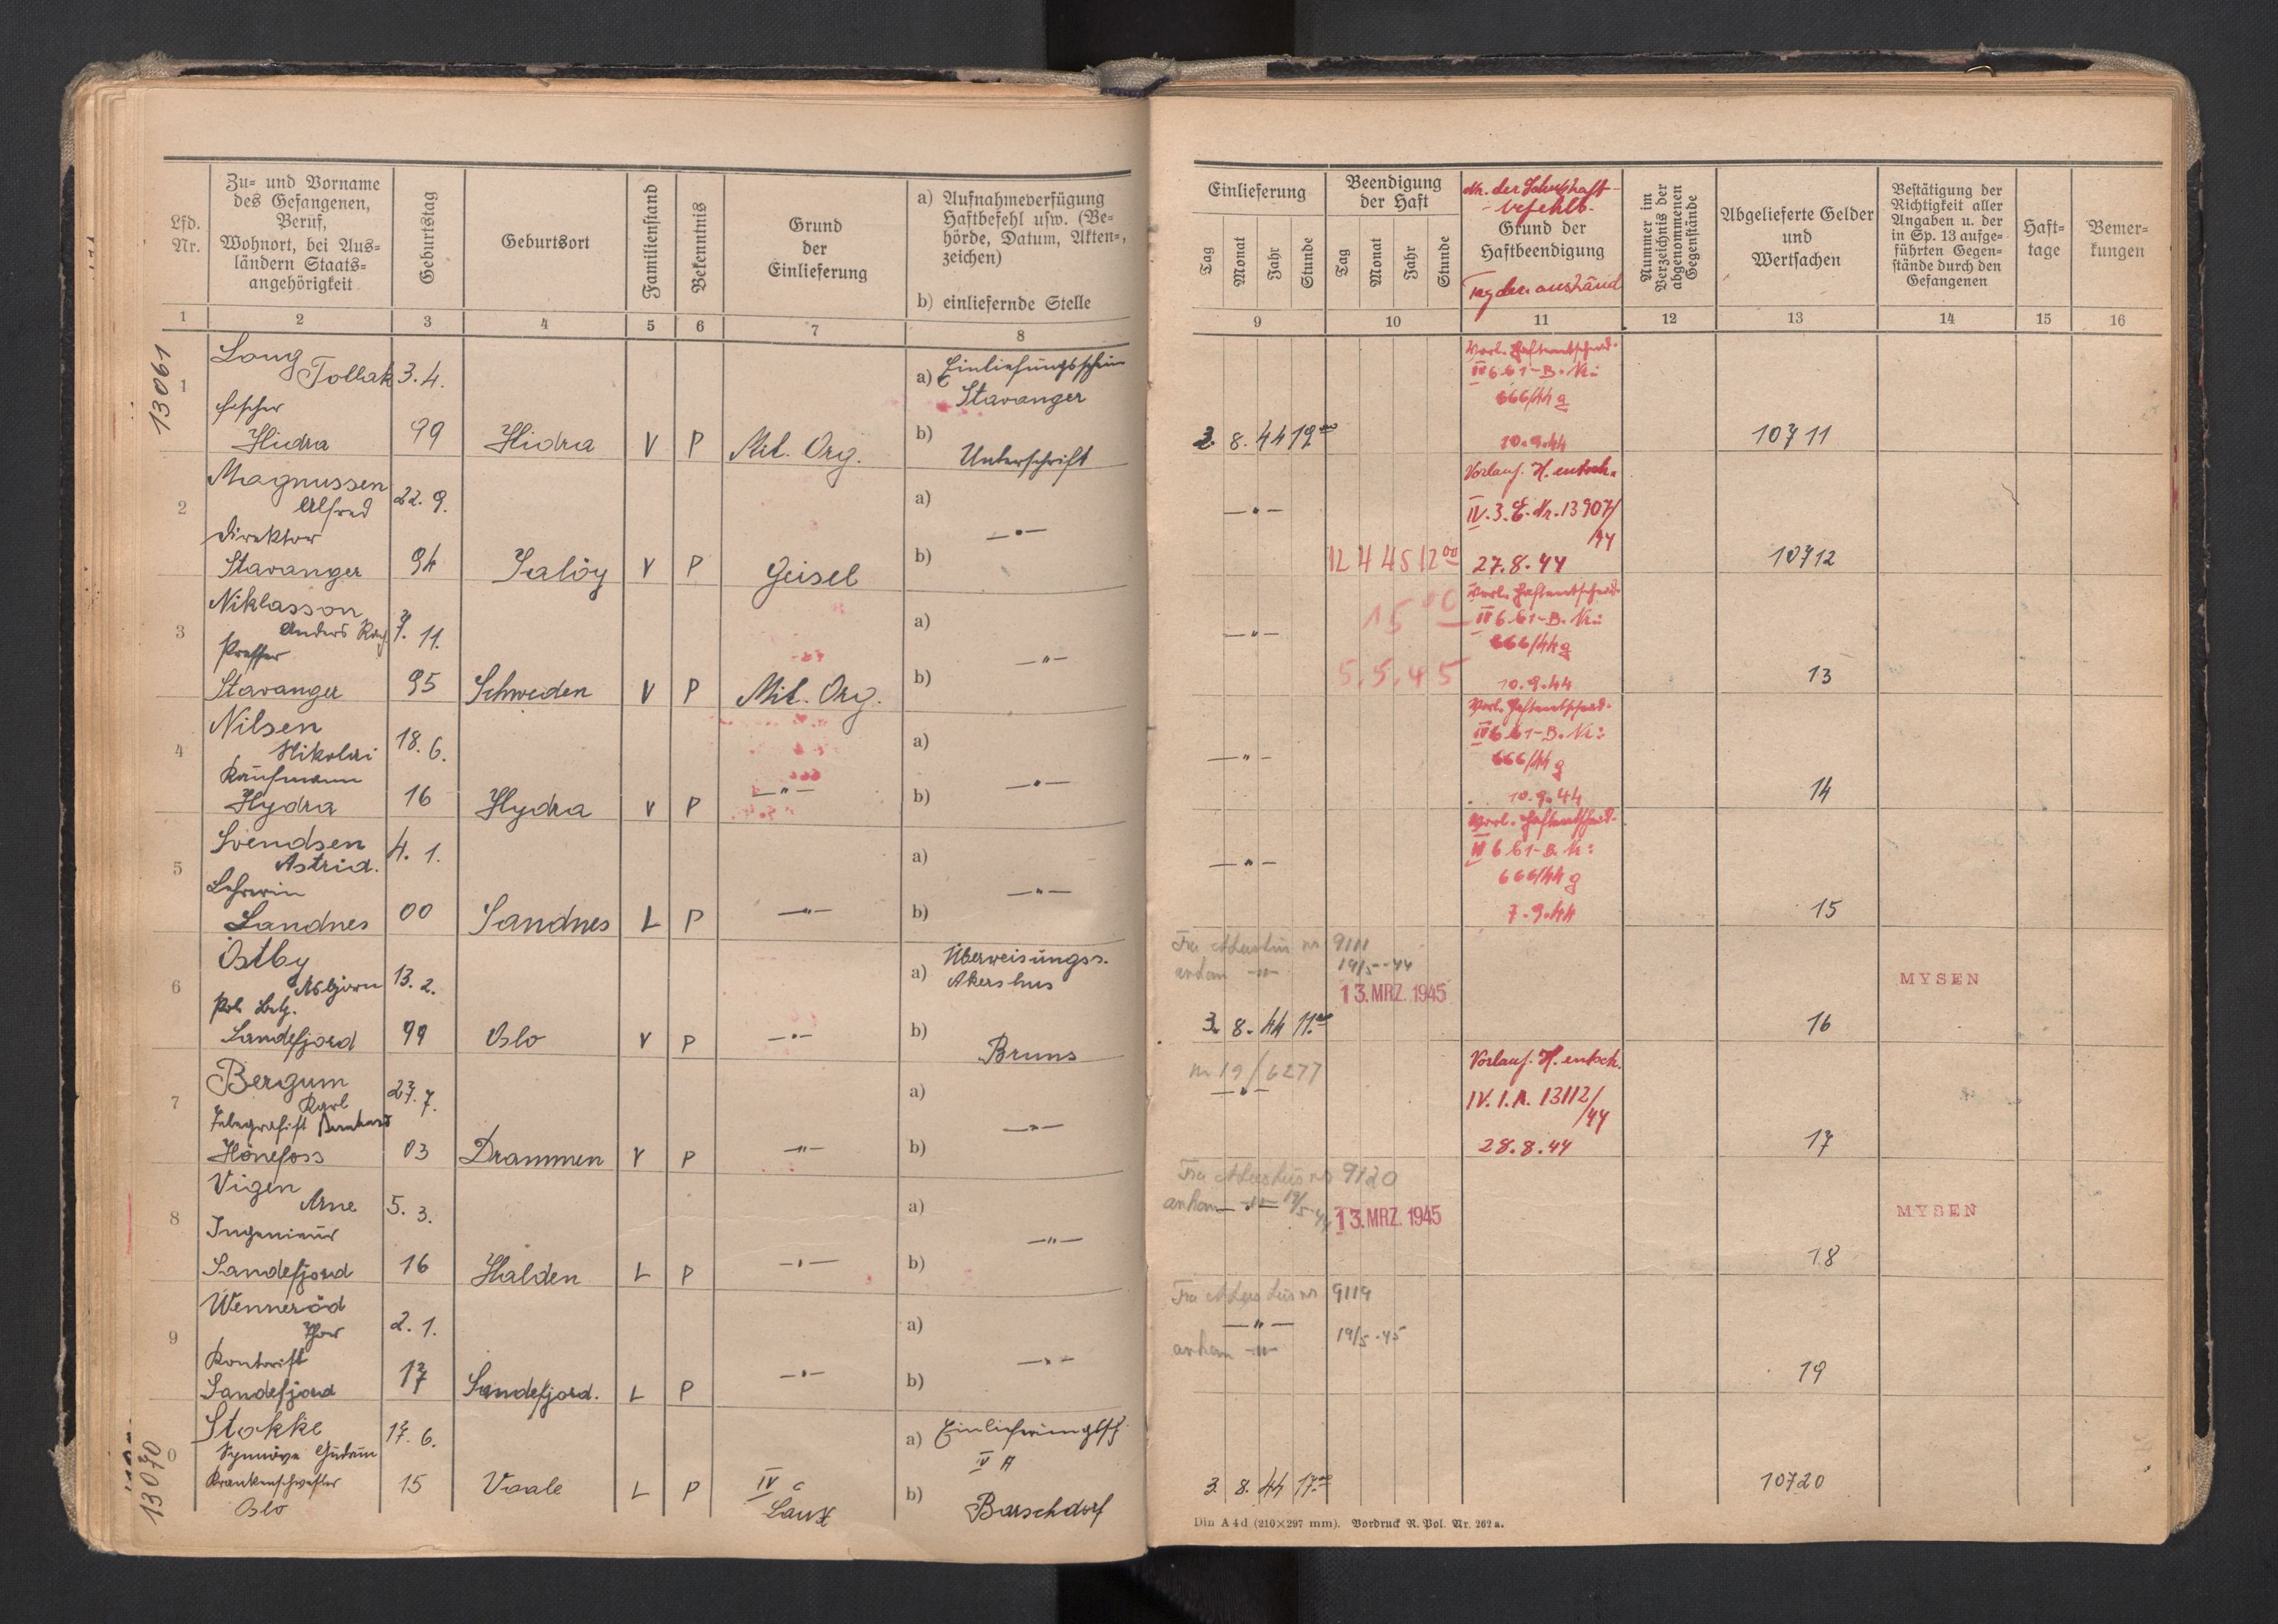 Lfd. Nr.
Zu- und Vorname
des Gefangenen,
Beruf,
Wohnort, bei Aus-
ländern Staats-
angehörigkeit
Geburtstag
Geburtsort
Familienstand
Bekenntnis
Grund
der
Einlieferung
a) Aufnahmeverfügung
Haftbefehl usw. (Be-
hörde, Datum, Akten-,
zeichen)
b) einliefernde Stelle
1 2 3 4 5 6 7 8
13061
1
Long
Tollak 3.4.
a) Einliefungsschein
Stavanger
Fischer
Hidra 99 Hidra V P Mil. Org.
b) Unterschrift
2
Magnussen
Alfred 22. 9.
a)
Direktor
—"—
Stavanger 94 Salöy V P Geisel
b)
3
Niklasson
Anders 7. 11.
a)
—"—
Stavanger 95 Schweden V P Mil. Org.
b)
4
Nilsen
Nikolai 18. 6.
a)
Kaufmann
—"—
Hydra 16 Hydra V P —"—
b)
5
Svendsen
Astrid. 4. 1.
a)
Lehrerin
—"—
Sandnes 00 Sandnes L P —"—
b)
6
Östby
Asbjörn 13. 2.
a) Überweisungss.
Akershus
Pol. Betj.
Sandefjord 99 Oslo V P —"—
b) Bruns
7
Bergum
Karl 27. 7.
a)
Telegrafist Bernhard
—"—
Hönefoss 03 Drammen V P —"—
b)
8
Vigen
Arne 5. 3.
a)
Ingenieur
—"—
Sandefjord 16 Halden L P —"—
b)
9
Wenneröd
Thor 2. 1.
a)
Kontorist
—"—
Sandefjord 17 Sandefjord. L P —"—
b)
13070
0
Stokke 17. 6.
Synnöve Gudrun
a) Einlieferungssch.
IV A
Krankenschwester
Oslo 15 Vaale L P IV c
Laux
b) Barschdorf
Einlieferung
Tag Monat Jahr Stunde
Beendigung
der Haft
Tag Monat Jahr Stunde
Nr. der Schutzhaft-
befehls.
Grund der
Haftbeendigung
Nummer im
Verzeichnis der
abgenommenen
Gegenstände
Abgelieferte Gelder
und
Wertsachen
Bestätigung der
Richtigkeit aller
Angaben u. der
in Sp. 13 aufge-
führten Gegen-
stände durch den
Gefangenen
Haft-
tage
Bemer-
kungen
9 10 11 12 13 14 15 16
Vorl. Haftentscheid.
IV 6 61-B. Nr:
666/44 g
3. 8. 44 19 00
10.9.44
10711
Vorlauf. H. entsch.
—"—
IV. 3. E. Nr. 13907/
/44
12 4 45 12 00
27.8.44
10712
Vorl. Haftentscheid.
15 00
IV 6 61-B. Nr:
—"—
666/44 g
5.5.45
10.9.44
13
Vorl. Haftentscheid.
IV 6 61-B. Nr:
—"—
666/44 g
10.9.44
14
Vorl. Haftentscheid.
IV 6 61-B. Nr:
—"—
666/44 g
7.9.44
15
Fra Akershus nr 9111
ankom —"— 19/5-44
13. MRZ. 1945
MYSEN
3. 8. 44 11 00
16
nr 19/6277
—"—
Vorlauf. H. entsch.
IV. 1. A. 13112/
/44
28.8.44
17
Fra Akershus nr 9120
ankom —"— 19/5-44
13. MRZ. 1945
MYSEN
18
Fra Akershus nr 9119
—"—
ankom —"— 19/5-45
19
3. 8. 44 17 00
10720
Din A 4d (210×297 mm). Vordruck R. Pol. Nr. 262a.